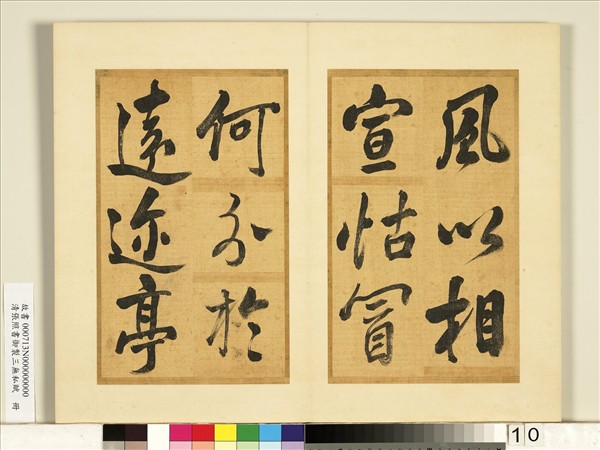 風以相
宣怙冒
何分於
遠迩亭
故書 000713N00000000
清張照書御製三無私賦 冊
10